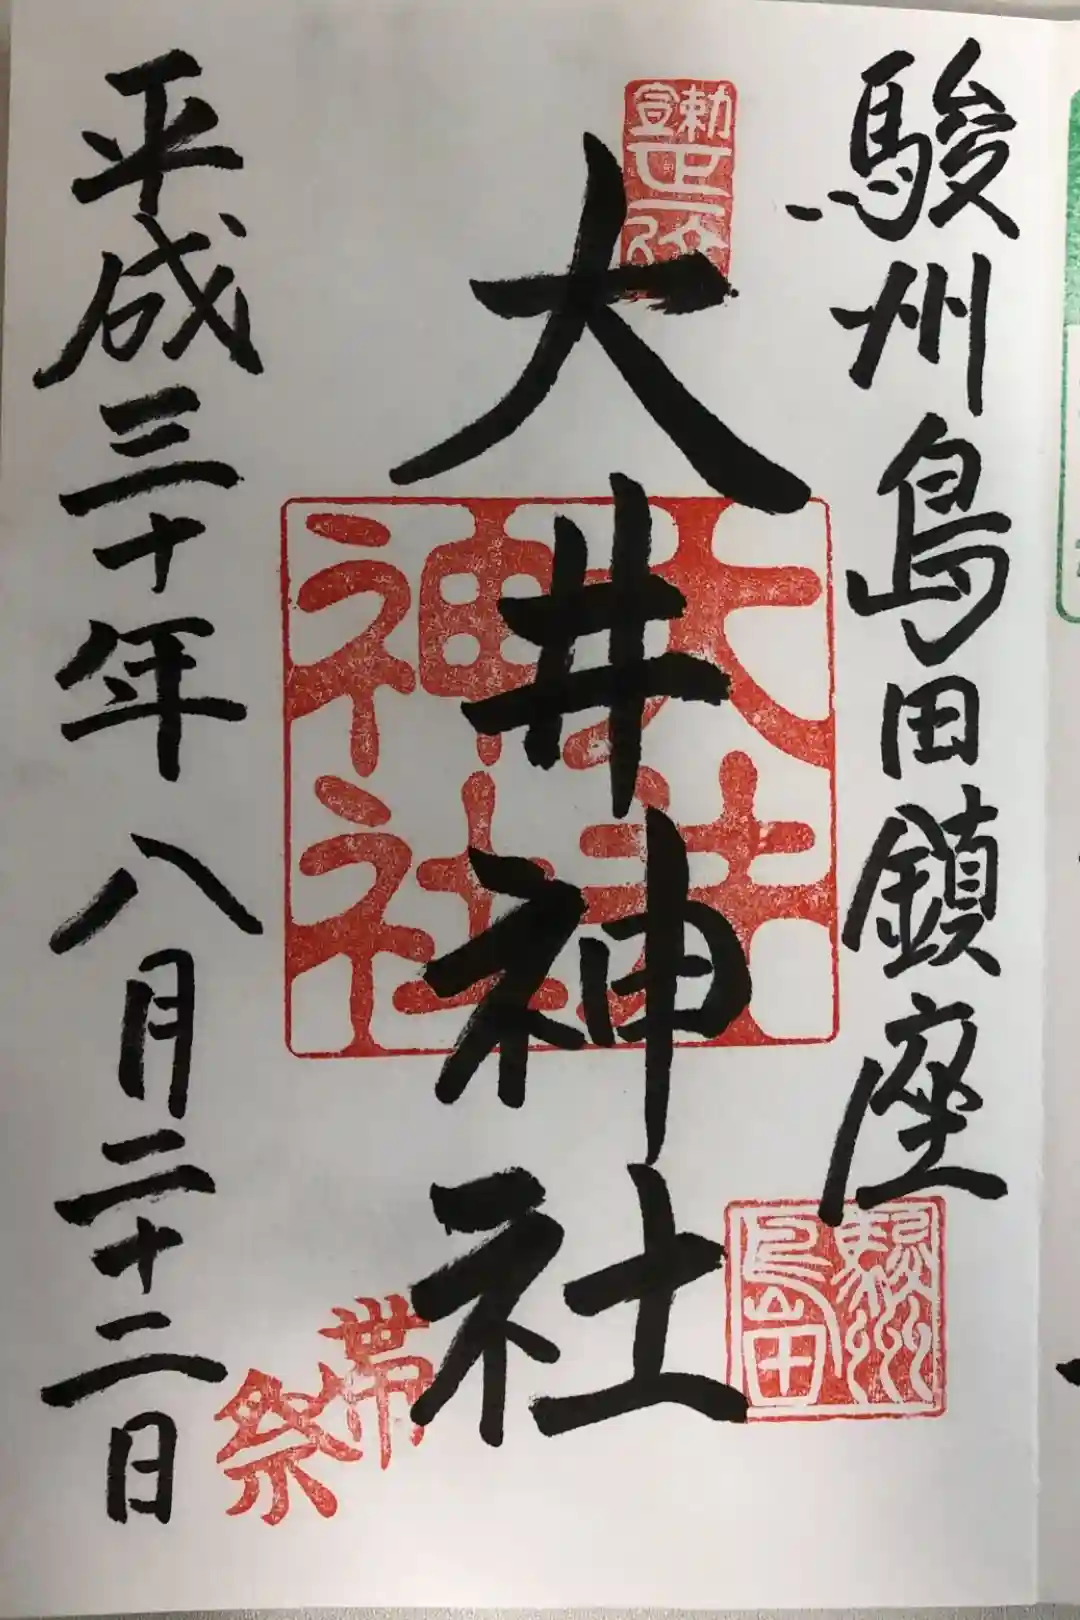 駿州島田鎮座
大井神社
平成三十年八月二十二日
勅宣
正一位
大井
神社
駿州
島田
帯
祭